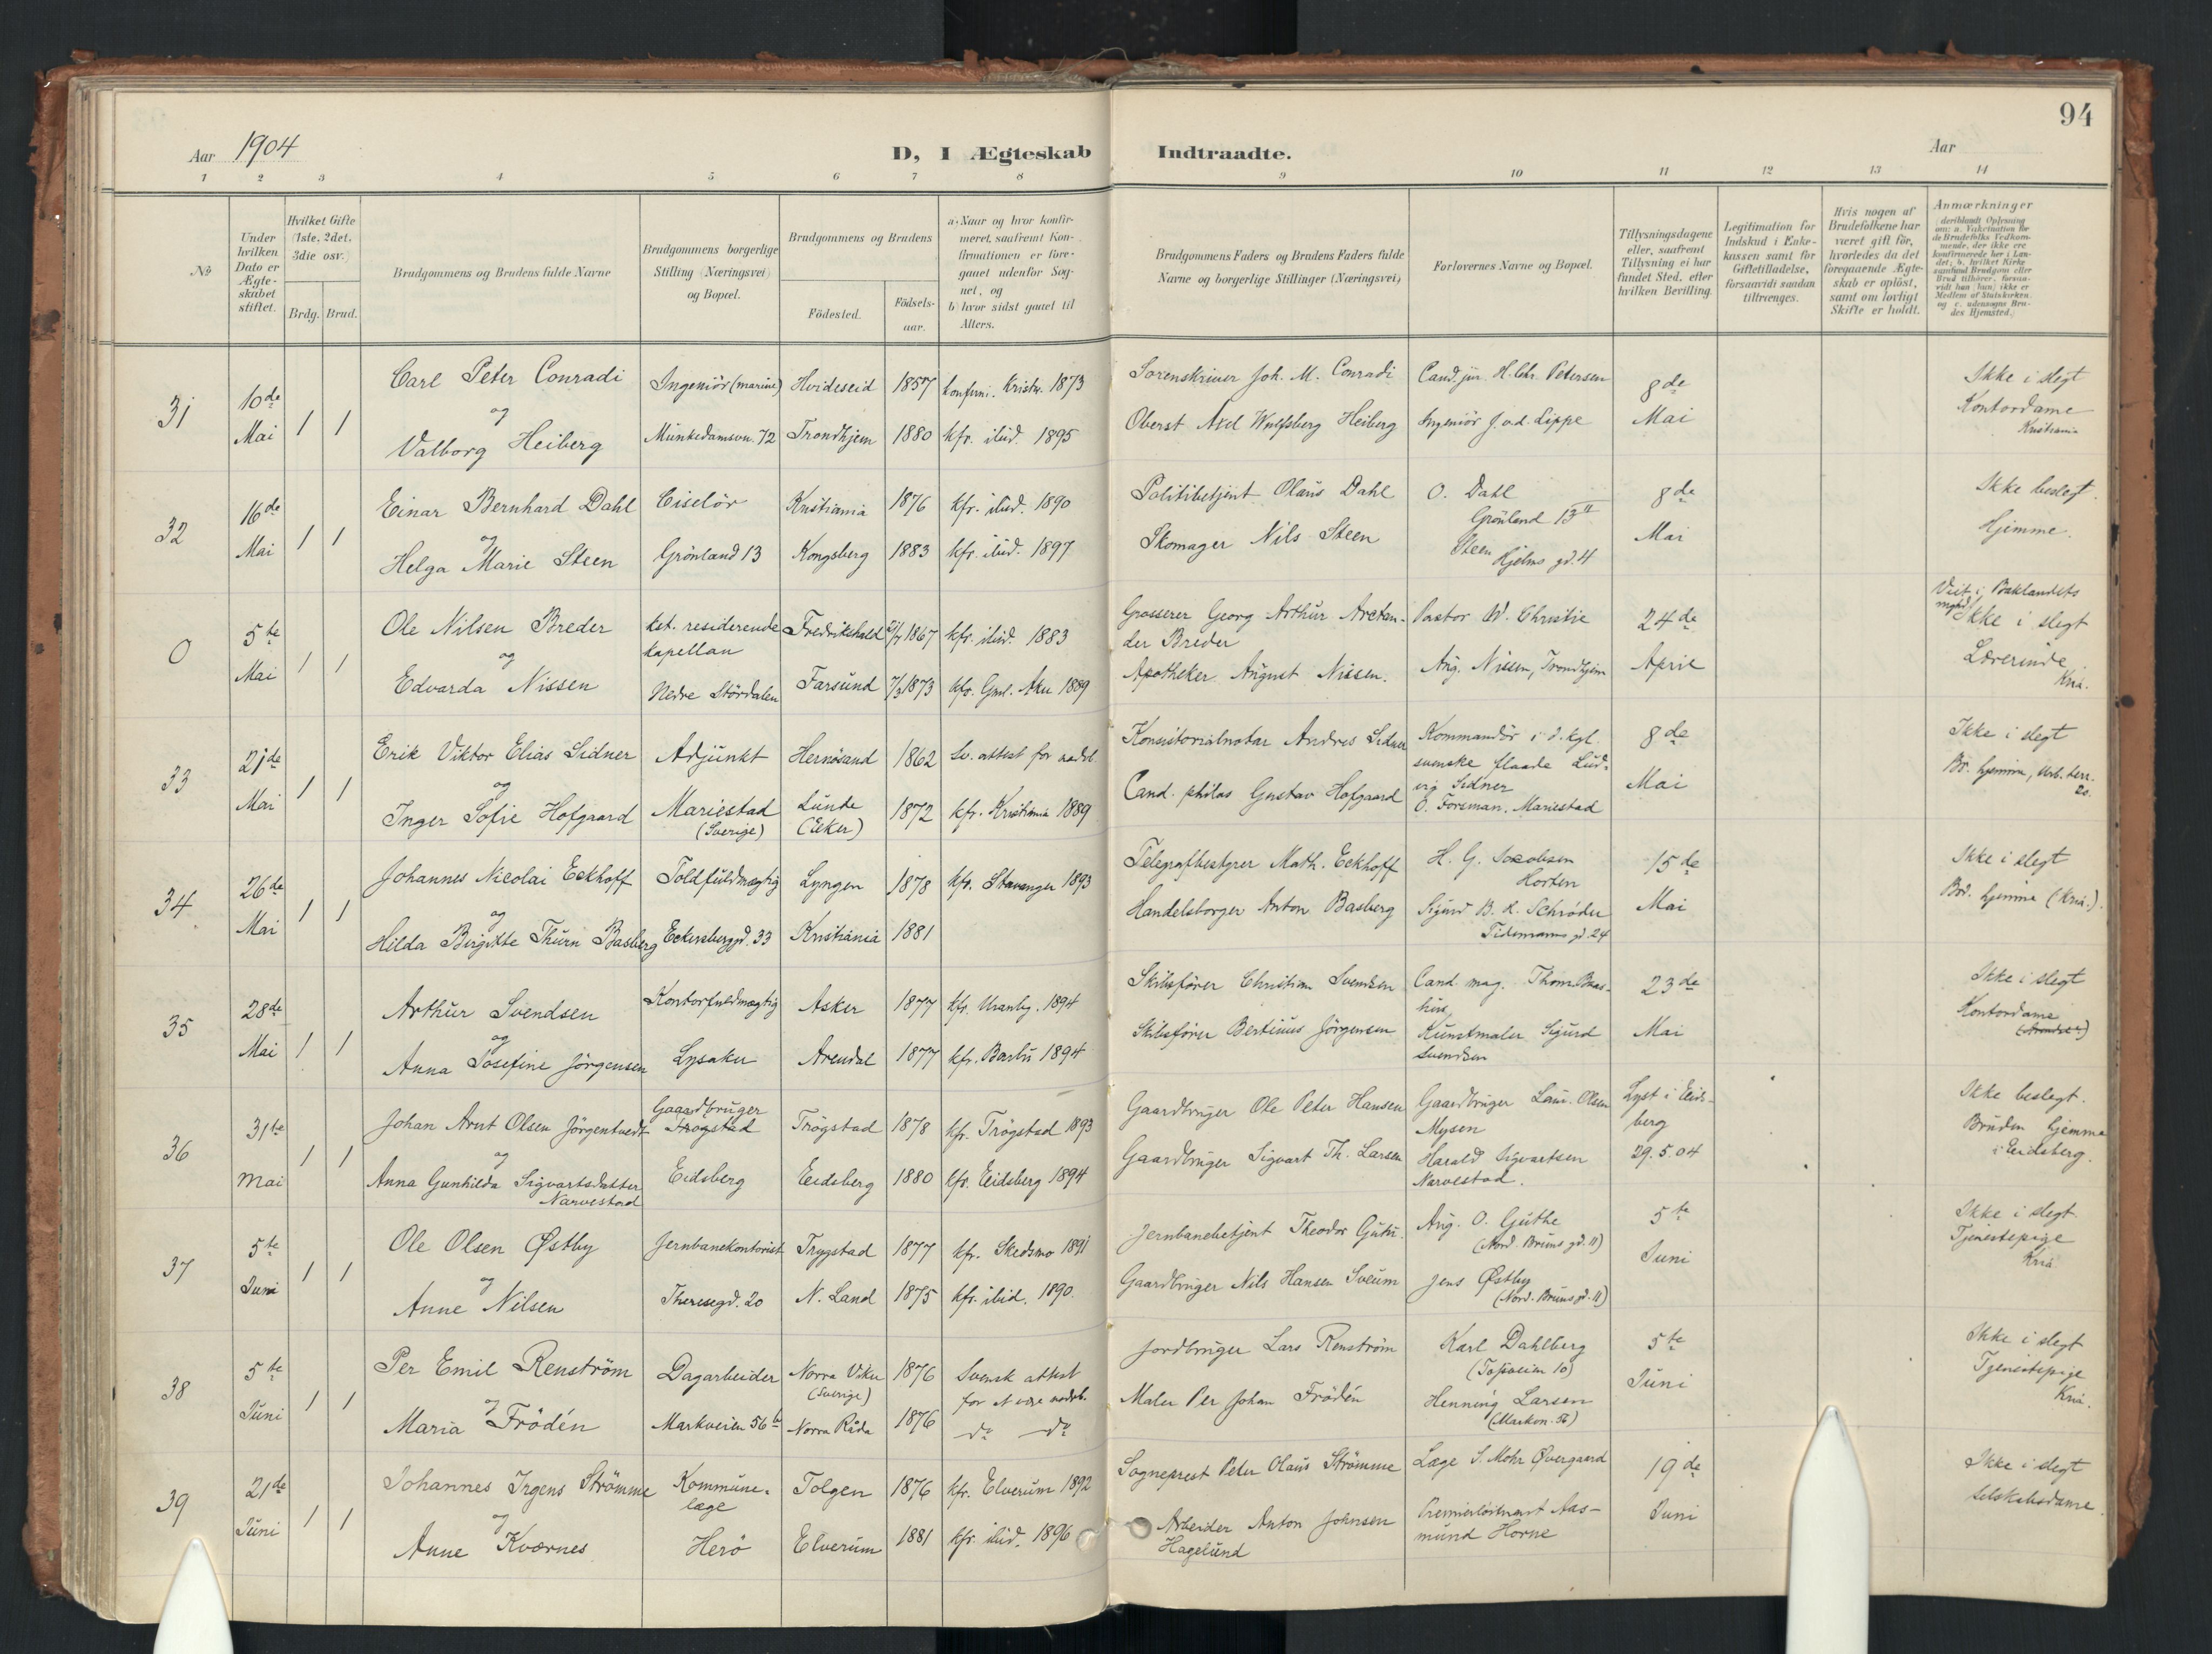 94
Aar 1904
D, I Ægteskab Indtraadte.
Aar
1 2 3 4 5 6 7 8 9 10 11 12 13 14
No
Under hvilken Dato er Ægteskabet stiftet.
Hvilket Gifte (1ste, 2det, 3die osv.)
Brdg. Brud.
Brudgommens og Brudens fulde Navne
Brudgommens borgerlige Stilling (Næringsvei) og Bopæl.
Brudgommens og Brudens
Födested.
Födsels-aar.
a) Naar og hvor konfir-
meret, saafremt Kon-
firmationen er fore-
gaaet udenfor Sog-
net, og
b) hvor sidst gaaet til
Alters.
Brudgommens Faders og Brudens Faders fulde
Navne og borgerlige Stillinger (Næringsvei)
Forlovernes Navne og Bopæl.
Tillysningsdagene
eller, saafremt
Tillysning ei har
fundet Sted, efter
hvilken Bevilling.
Legitimation for
Indskud i Enke-
kassen samt for
Giftetilladelse,
forsaavidt saadan
tiltrænges.
Hvis nogen af
Brudefolkene har
været gift för,
hvorledes da det
foregaaende Ægte-
skab er oplöst,
samt om lovligt
Skifte er holdt.
Anmærkninger
(deriblandt Oplysning
om: a. Vakcination for
de Brudefolks Vedkom-
mende, der ikke ere
konfirmerede her i Lan-
det; b. hvilket Kirke-
samfund Brudgom eller
Brud tilhörer, forsaa-
vidt han (hun) ikke er
Medlem af Statskirken,
og c. udensogns Bru-
des Hjemsted.)
31 10de Mai 1 1
Carl Peter Conradi Ingeniör (marine) Hvideseid 1857 konfirm. Kristia. 1873 Sorenskriver Joh. M. Conradi Cand. jur. H. Chr. Petersen 8de Ikke i slegt
og
Valborg Heiberg Munkedamsvn. 72 Trondhjem 1880 kfr. ibid. 1895 Oberst Axel Wulfsberg Heiberg Ingeniör J. v.d. Lippe Mai Kontordame
Kristiania
32 16de Mai 1 1
Einar Bernhard Dahl Ciselör Kristiania 1876 kfr. ibid. 1890 Politibetjent Olaus Dahl O. Dahl 8de Ikke beslegt.
Grönland 13 II
og
Helga Marie Steen Grönland 13 Kongsberg 1883 kfr. ibid. 1897 Skomager Nils Steen Steen Mai Hjemme.
Hjelms gd. 4
Viet i Baklandets
0 5te Mai 1 1
Ole Nilsen Breder kst. residerende Fredrikshald 1867 kfr. ibid. 1883 Grosserer Georg Arthur Arctan- Pastor W. Christie 24de Ikke i slegt
kapellan der Breder
og
Edvarda Nissen Nedre Stördalen Farsund 7/3 1873 kfr. Gml. Aker 1889 Apotheker August Nissen. Aug. Nissen, Trondhjem April Lærerinde
Kria.
33 21de Mai 1 1
Erik Viktor Elias Sidner Adjunkt Hernösand 1862 Sv. attest for Konsistorialnotar Andres Sidner Kommandör i d. kgl. 8de Ikke i slegt
svenske flaade Lud-
og
Inger Sofie Hofgaard Mariestad Lunde 1872 kfr. Kristiania 1889 Cand. philos Gustav Hofgaard vig Sidner Mai Br. hjemme,
(Sverige) (Eker) O. Forsman. Mariestad
34 26de Mai 1 1
Johannes Nicolai Eckhoff Toldfuldmægtig Lyngen 1878 kfr. Stavanger 1893 Telegrafbestyrer Math. Eckhoff H. G. Jacobsen 15de Ikke i slegt
Horten
og
Hilda Birgitte Thurn Basberg Eckersbergsgd. 33 Kristiania 1881 Handelsborger Anton Basberg Sigurd B. R. Schröder Mai Brd. hjemme (Kria.).
Tidemands gd. 24
35 28de Mai 1 1
Arthur Svendsen Kontorfuldmægtig Asker 1877 kfr. Uranbg. 1894 Skibsförer Christian Svendsen Cand. mag. Thom. 23de Ikke i slegt
og
Anna Josefine Jörgensen Lysaker Arendal 1877 kfr. Barbu 1894 Skibsförer Bertinus Jörgensen Kunstmaler Sigurd Mai Kontordame
Svendsen
36 31te Mai 1 1
Johan Arnt Olsen Jörgentvedt Gaardbruger Trögstad 1878 kfr. Trögstad 1893 Gaardbruger Ole Peter Hansen Gaardbruger Laur. Olsen Lyst i Eids- Ikke beslegt.
Trogstad Mysen berg
og
Anna Gunhilda Sigvartsdatter Eidsberg Eidsberg 1880 kfr. Eidsberg 1894 Gaardbruger Sigvart Th. Larsen Harald Sigvartsen 29.5.04 Bruden hjemme
Narvestad Narvestad. i Eidsberg.
37 5te Juni 1 1
Ole Olsen Østby Jernbanekontorist Trygstad 1877 kfr. Skedsmo 1891 Jernbanebetjent Theodor Aug. O. Guthe 5te Ikke i slegt
(Nord. Bruns gd. 11)
og
Anne Nilsen Theresegd. 20 N. Land 1875 kfr. ibid. 1890. Gaardbruger Nils Hansen Sveum Jens Østby Juni Tjenestepige
(Nord. Bruns gd. 11) Kria.
38 5te Juni 1 1
Per Emil Renström Dagarbeider Norra Viker 1876 Svensk attest Jordbruger Lars Renström Karl Dahlberg 5te Ikke i slegt
(Sverige) (Toftveien 10)
og
Maria Frödén Markveien 56 b Norra Råda 1876 do do Maler Per Johan Frödén Henning Larsen Juni Tjenestepige
(Markvn. 56) Kria.
39 21de Juni 1 1
Johannes Irgens Strömme Kommune- Tolgen 1876 kfr. Elverum 1892 Sogneprest Peter Olaus Strömme Læge S. Mohr Øvergaard 19de Ikke i slegt
læge
og
Anne Kværnes Herö Elverum 1881 kfr. ibid. 1896 Arbeider Anton Johnsen Premierlöitnant Aas- Juni Selskabsdame.
Hagelund mund Horne